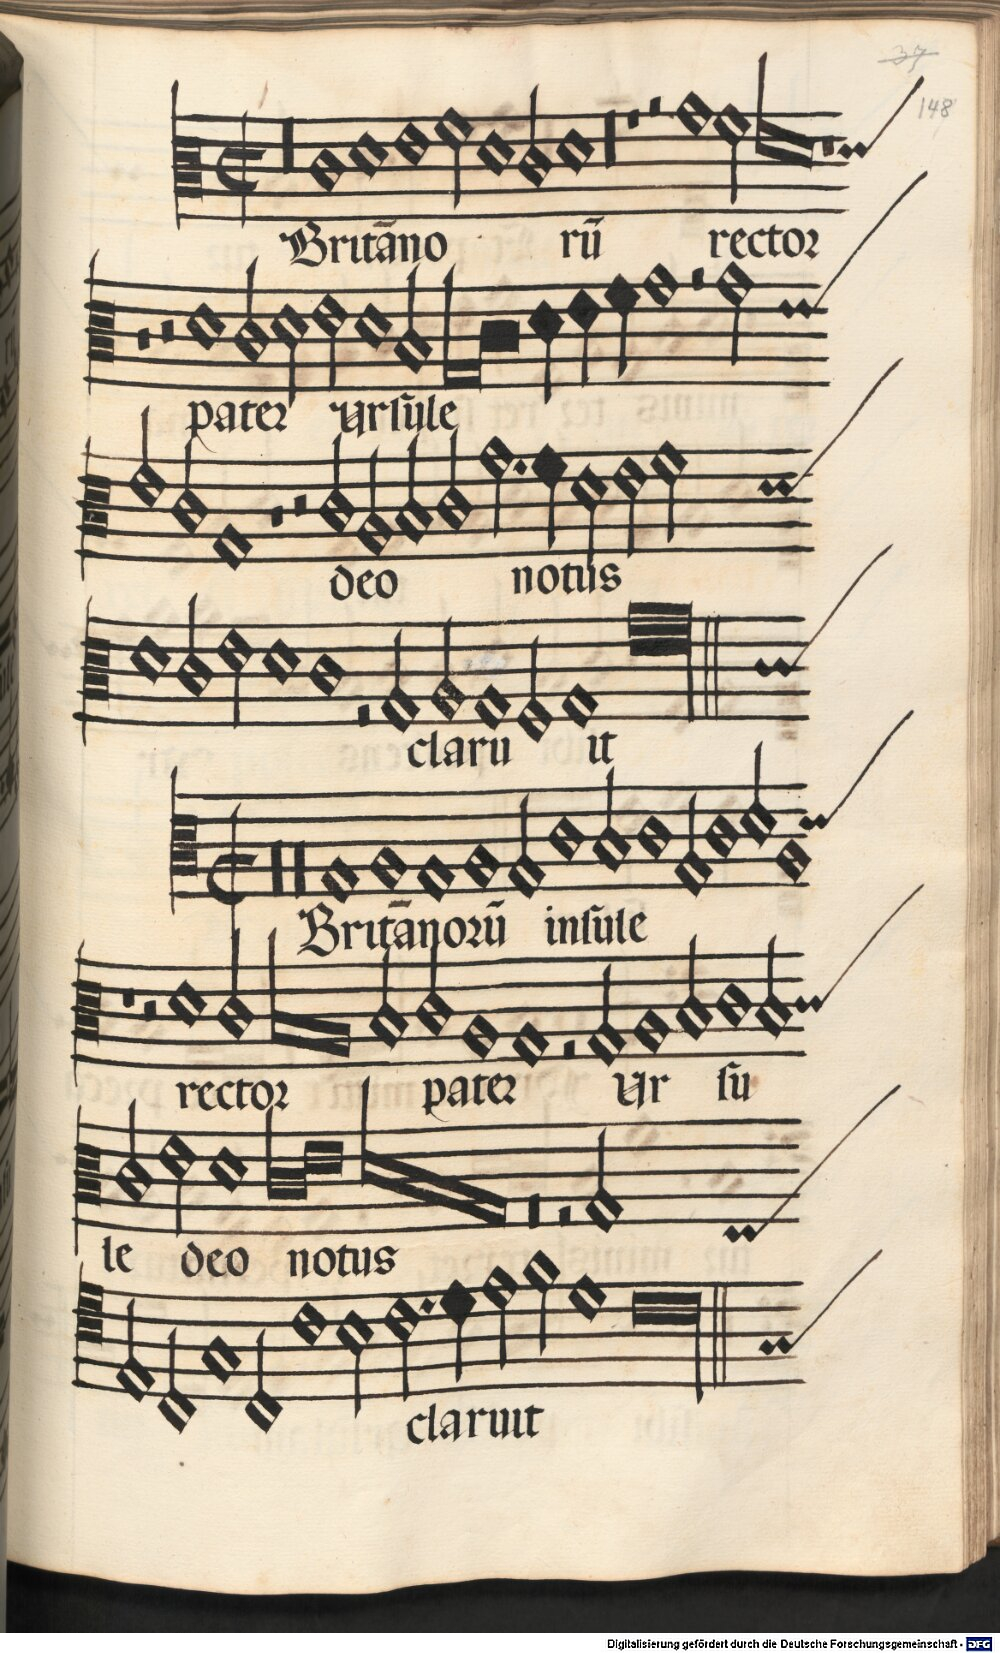 37
148
Britāno rū rector
pater Ursule
deo notus
claru it
Britānorū insule
rector pater Ur su
le deo notus
claruit
Digitalisierung gefördert durch die Deutsche Forschungsgemeinschaft - DFG